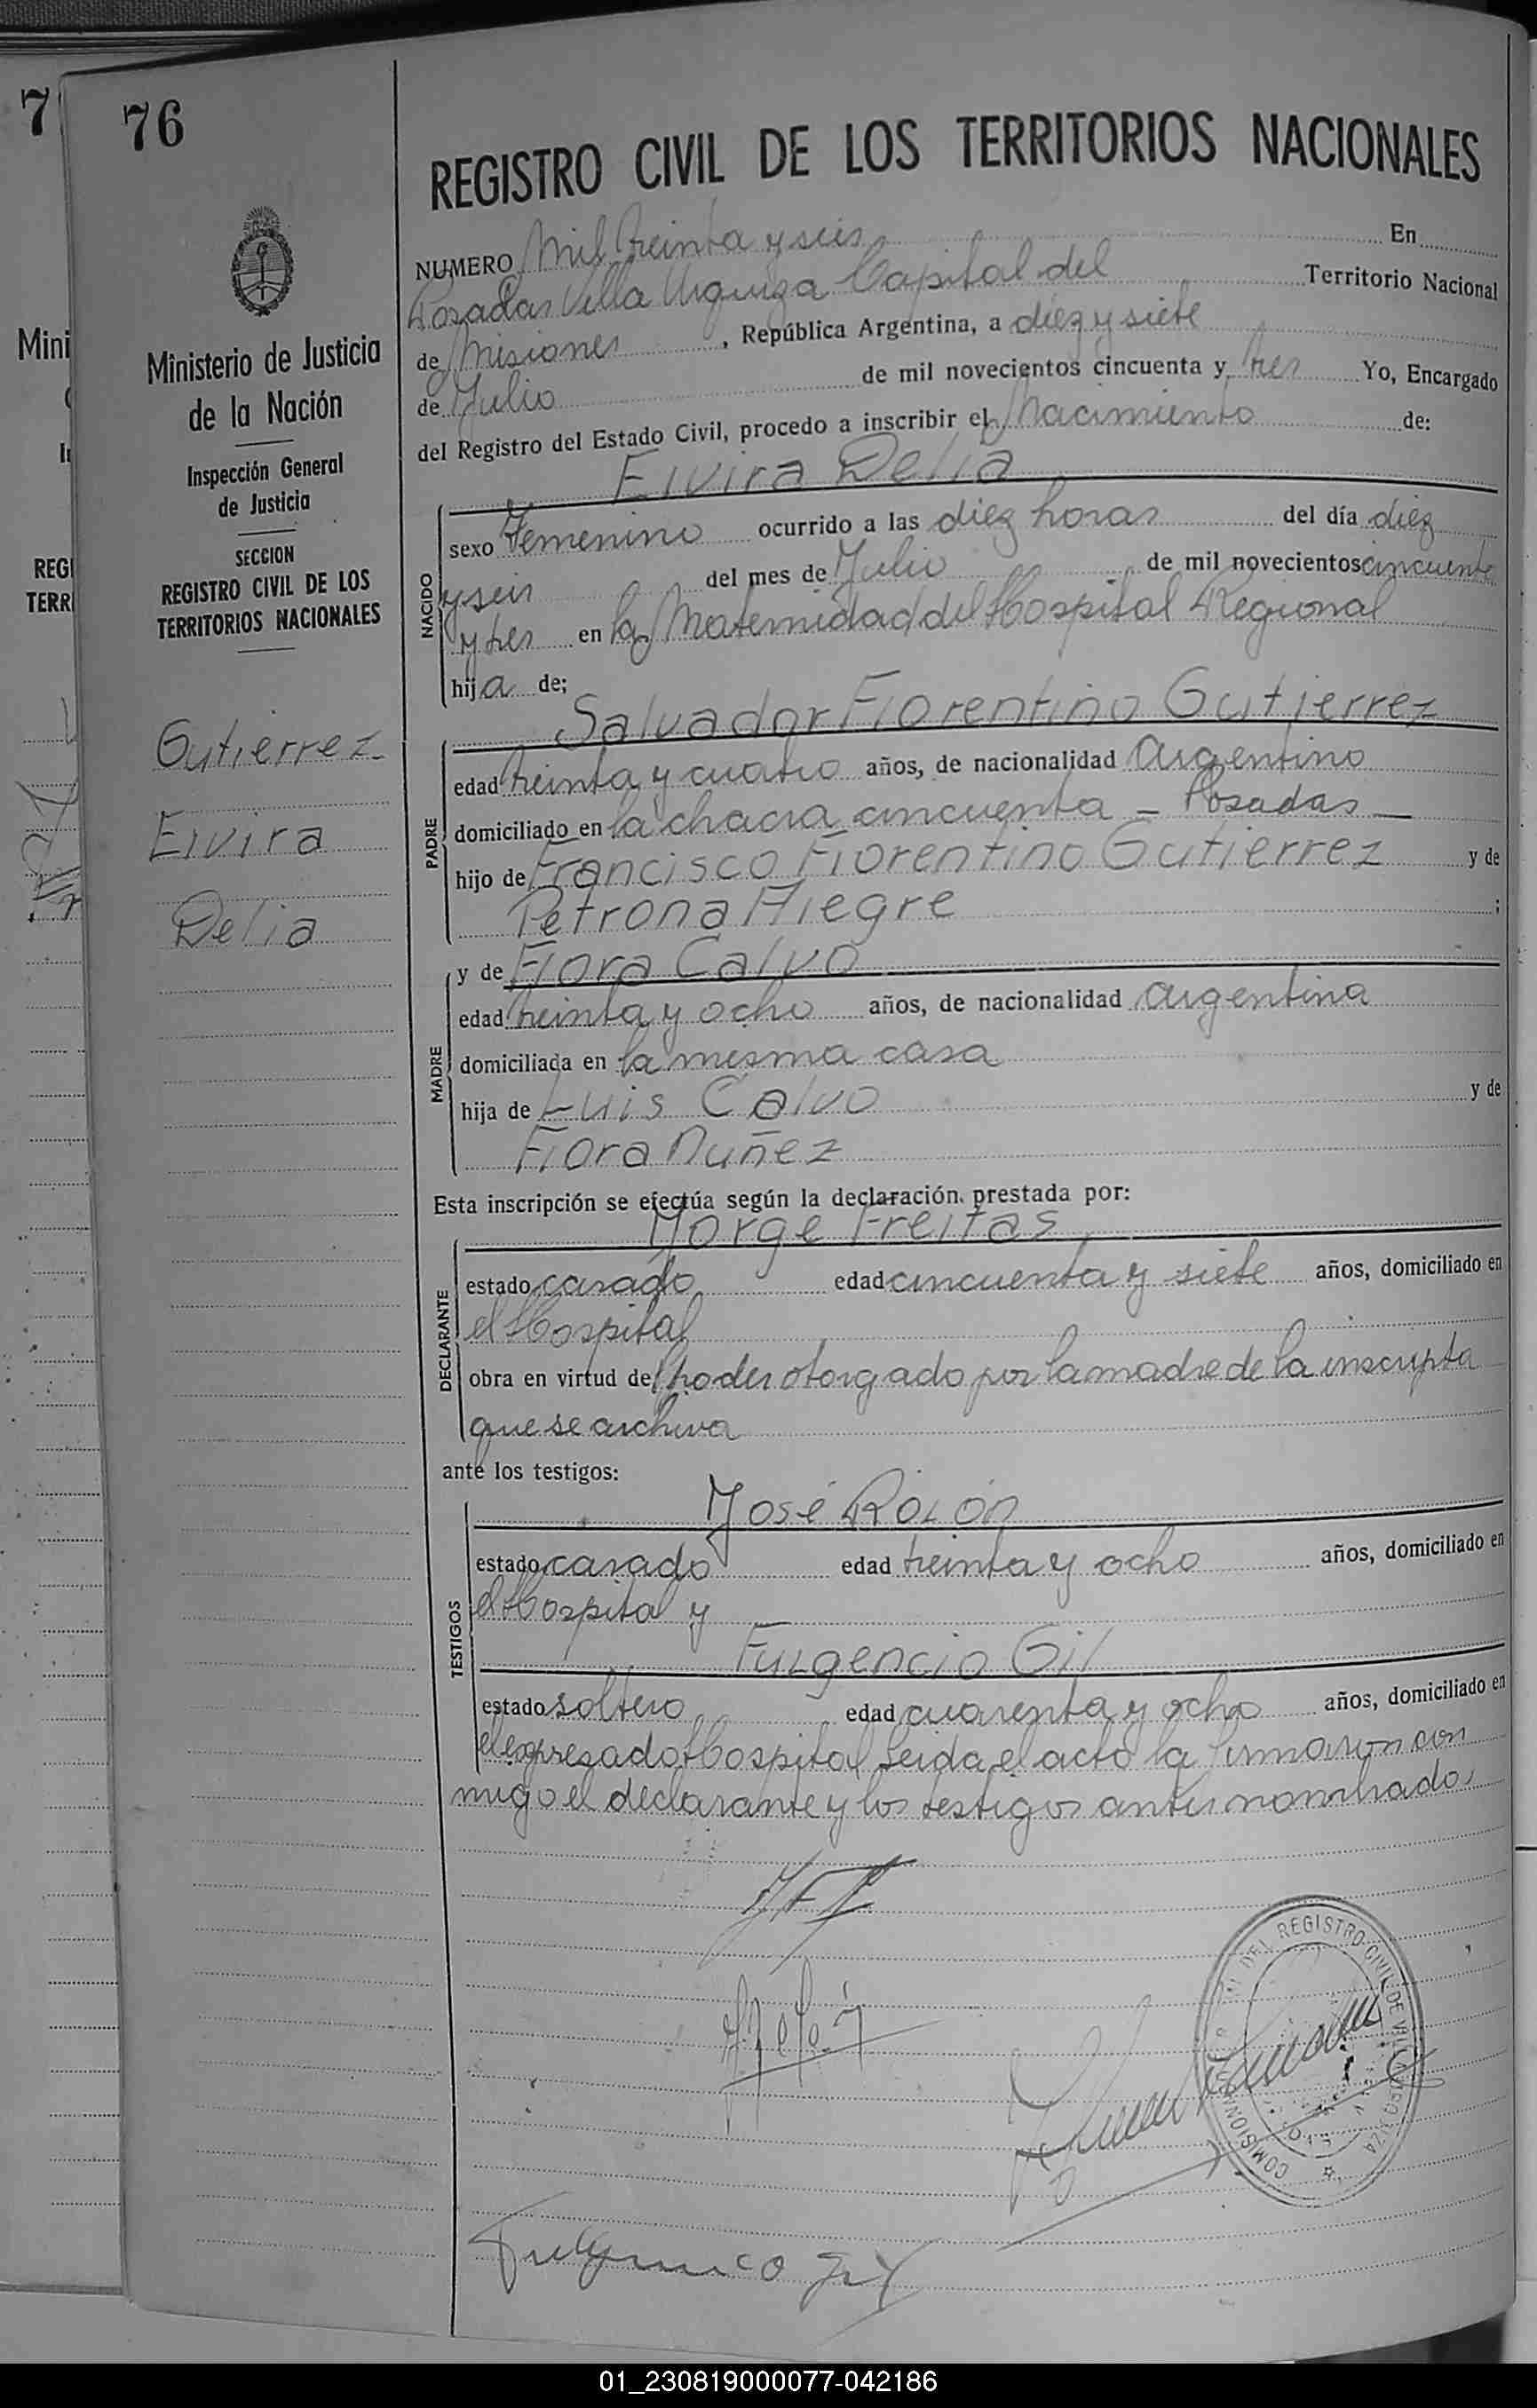 76
Ministerio de Justicia
de la Nación
Inspección General
de Justicia
SECCION
REGISTRO CIVIL DE LOS
TERRITORIOS NACIONALES
Gutierrez
Elvira
Delia
REGISTRO CIVIL DE LOS TERRITORIOS NACIONALES
NUMERO Mil treinta y seis En
Posadas Villa Urquiza Capital del Territorio Nacional
de Misiones, República Argentina, a diez y siete
de Julio de mil novecientos cincuenta y tres Yo, Encargado
del Registro del Estado Civil, procedo a inscribir el Nacimiento de:
Elvira Delia
NACIDO
sexo Femenino ocurrido a las diez horas del día diez
y seis del mes de Julio de mil novecientos cincuenta
y tres en la Maternidad del Hospital Regional
hija de;
Salvador Florentino Gutierrez
PADRE
edad treinta y cuatro años, de nacionalidad Argentino
domiciliado en la chacra cincuenta - Posadas
hijo de Francisco Florentino Gutierrez y de
Petrona Alegre ;
MADRE
y de Flora Calvo
edad treinta y ocho años, de nacionalidad Argentina
domiciliada en la misma casa
hija de Luis Calvo y de
Flora Nuñez
Esta inscripción se efectúa según la declaración prestada por:
Jorge Freitas
DECLARANTE
estado casado edad cincuenta y siete años, domiciliado en
el Hospital
obra en virtud de poder otorgado por la madre de la inscripta
que se archiva
ante los testigos:
José Rolón
TESTIGOS
estado casado edad treinta y ocho años, domiciliado en
el Hospital y
Fulgencio Gil
estado soltero edad cuarenta y ocho años, domiciliado en
el expresado Hospital Leida el acta la firmaron con
migo el declarante y los testigos antes nombrados
DEL REGISTRO CIVIL DE VILLA URQUIZA
COMISIONADO
Fulgencio Gil
7
Mini
REGI
TERR
01_230819000077-042186